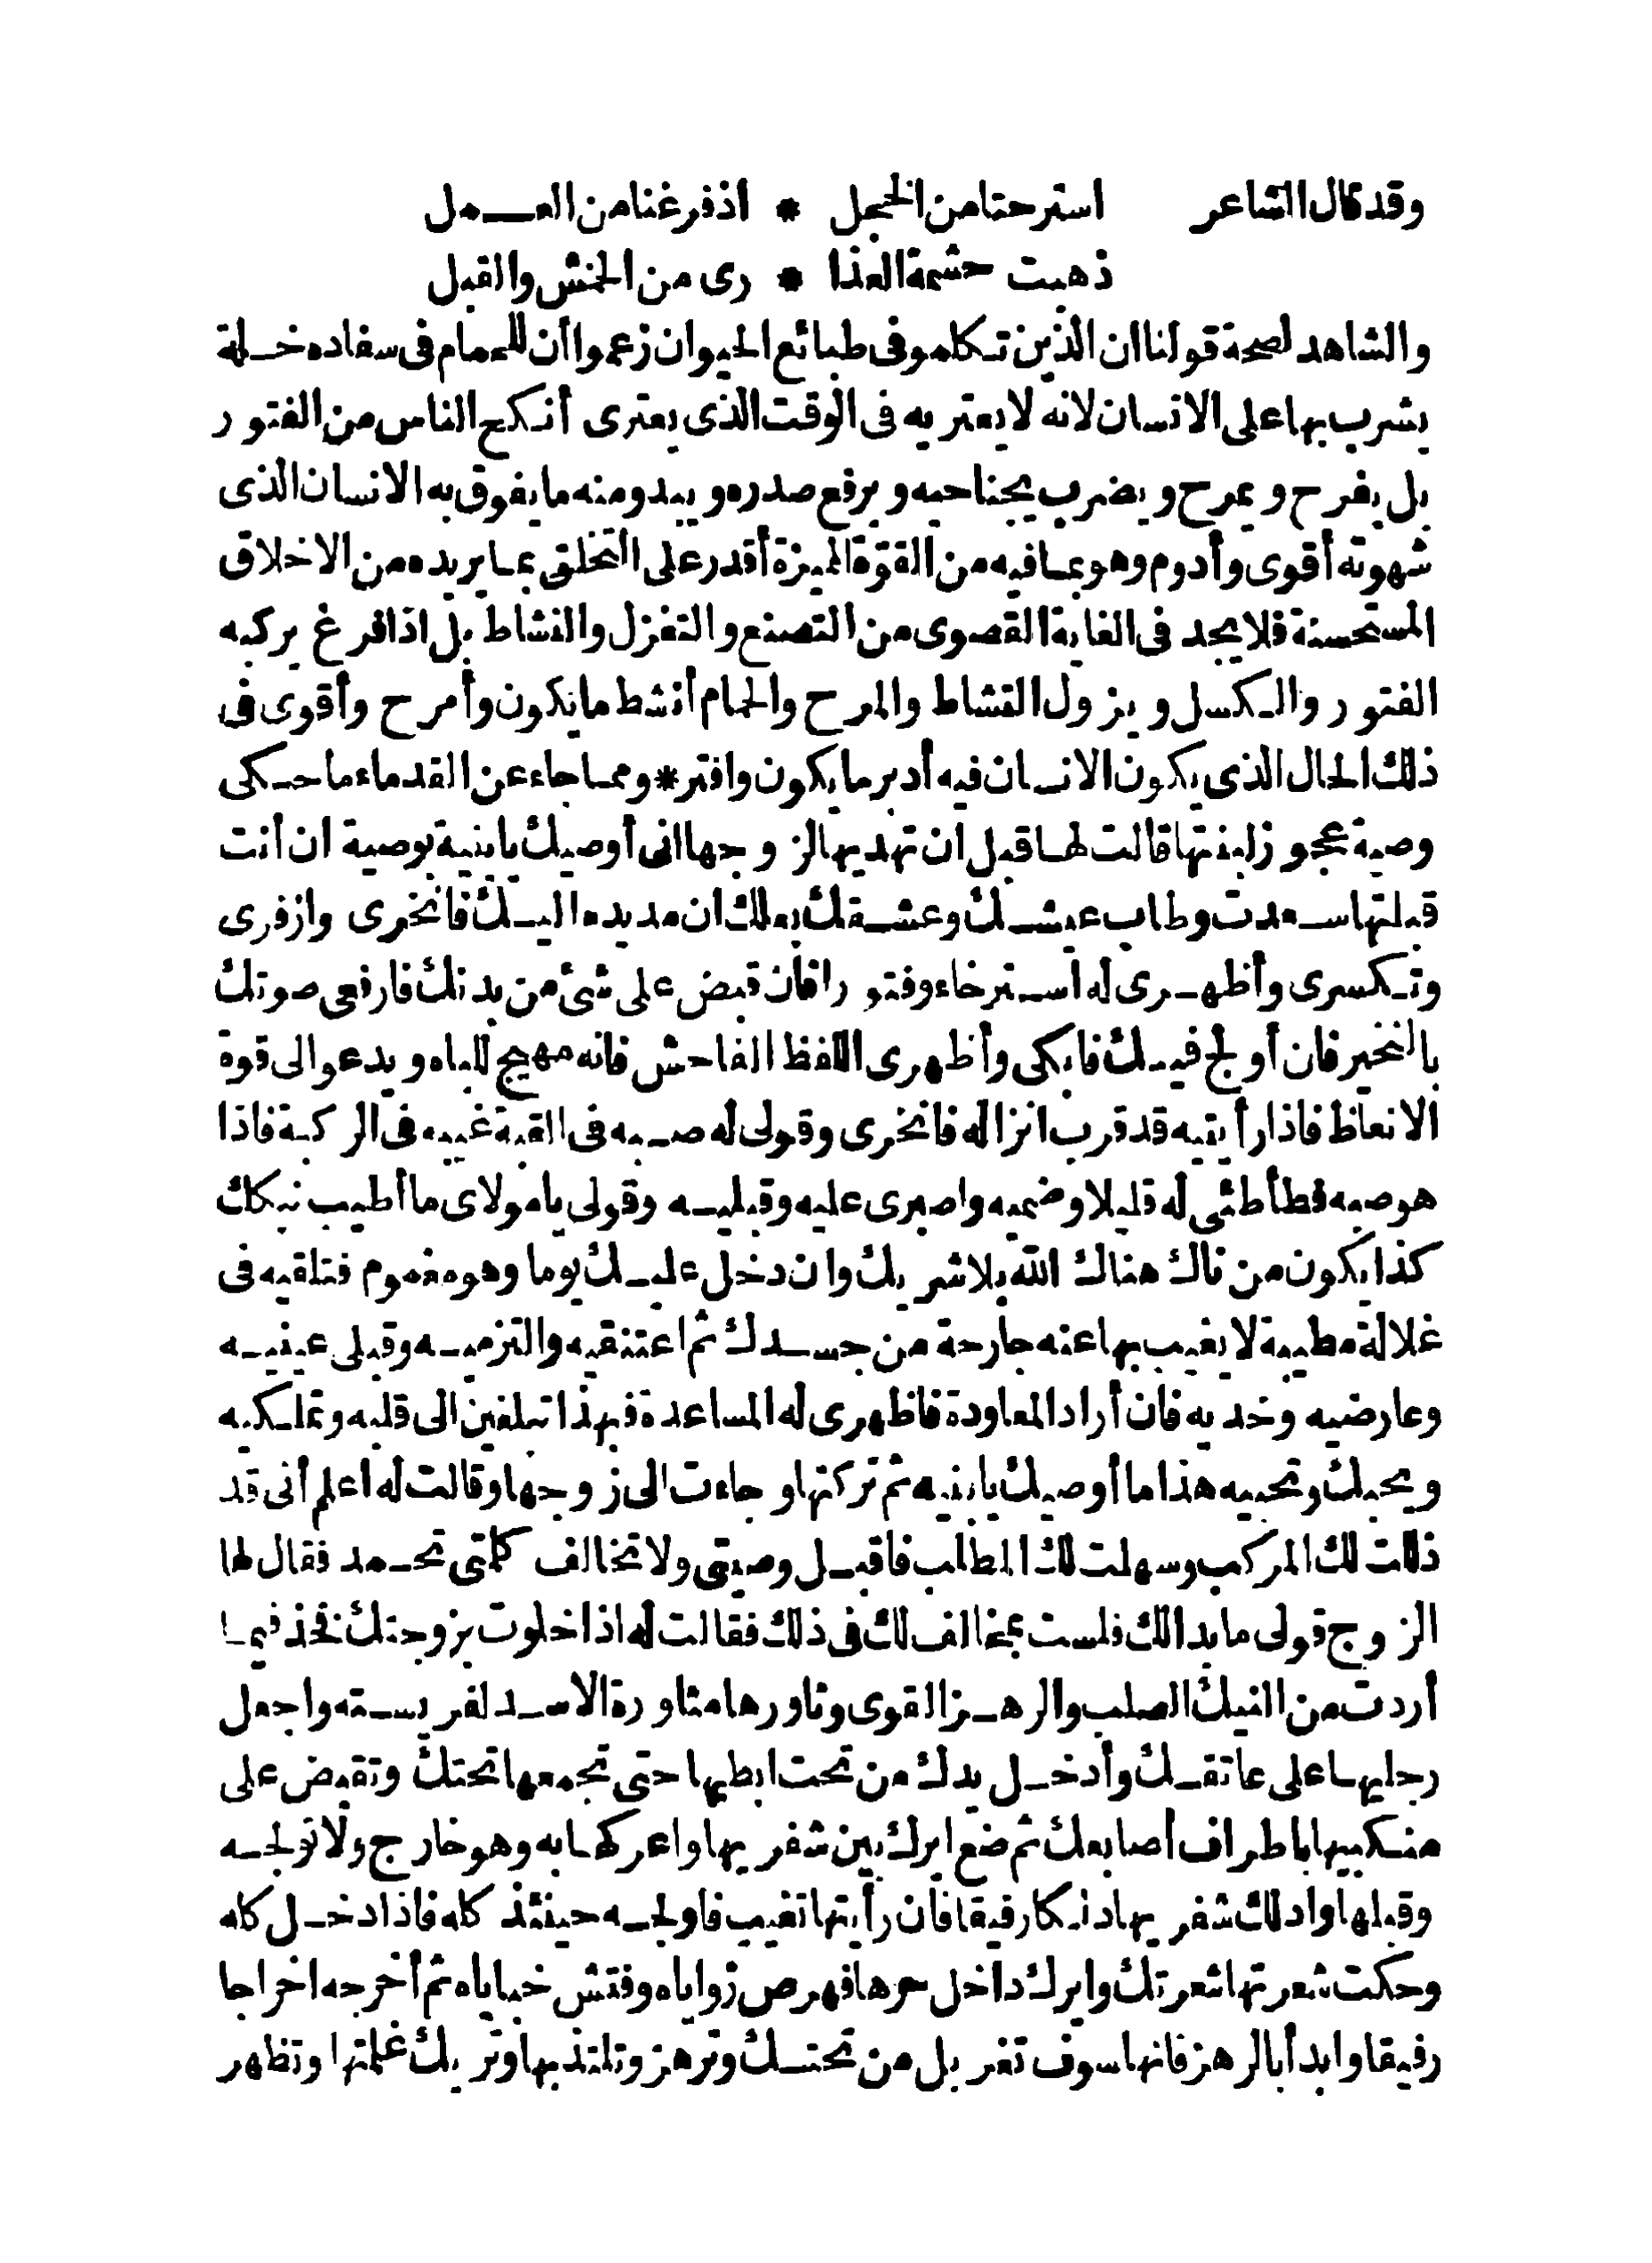 وقد قال الشاعر استرحنا من الخجل * اذ فرغنا من العمل
ذهبت حشمة العذا * رى من الخنش والقبل
والشاهد لصحة قولنا ان الذين تكلموفى طبائع الحيوان زعموا أن للحمام فى سفاده خلة
يشرب بها على الانسان لانه لا يعتريه فى الوقت الذى يعترى أنكح الناس من الفتور
بل يفرح ويمرح ويضرب بجناحيه ويرفع صدره ويبدو منه ما يفوق به الانسان الذى
شهوته أقوى وأدوم وهو بما فيه من القوّة المميزة أقدر على التخلق بما يريده من الاخلاق
المستحسنة فلا يجد فى الغاية القصوى من التصنع والتغزل والنشاط بل اذا فرغ يركبه
الفتور والكسل ويزول النشاط والمرح والحمام أنشط ما يكون وأمرح وأقوى فى
ذلك الحال الذى يكون الانسان فيه أدبر ما يكون وافتر * ومما جاء عن القدماء ما حكى
وصية عجوز لابنتها قالت لها قبل ان تهديها لزوجها انى أوصيك يا بنية بوصية ان أنت
قبلتها سعدت وطاب عيشك وعشقك بعلك ان مد يده اليك فانخرى وازفرى
وتكسرى وأظهرى له استرخاء وفتورا فان قبض على شئ من بدنك فارفعى صوتك
بالنخير فان أولج فيك فابكى وأظهرى اللفظ الفاحش فانه مهيج للباه ويدعو الى قوة
الانعاظ فاذا رأيتيه قد قرب انزاله فانخرى وقولى له صبه فى القبة غيبه فى الركبة فاذا
هو صبه فطأطئى له قليلا وضميه واصبرى عليه وقبليه وقولى يا مولاى ما أطيب نيكك
كذا يكون من ناك هناك الله بلا شريك وان دخل عليك يوما وهو مغموم فتلقيه فى
غلالة مطيبة لا يغيب بها عنه جارحة من جسدك ثم اعتنقيه والتزميه وقبلى عينيه
وعارضيه وخديه فان أراد المعاودة فاظهرى له المساعدة فبهذا تبلغين الى قلبه وتملكيه
ويحبك وتحبيه هذا ما أوصيك يا بنيه ثم تركتها وجاءت الى زوجها وقالت له اعلم أنى قد
ذللت لك المركب وسهلت لك المطلب فاقبل وصيتى ولا تخالف كلمتى تحمد فقال لها
الزوج قولى ما بدا لك فلست بمخالف لك فى ذلك فقالت له اذا خلوت بزوجتك فخذ فيما
أردت من النيك الصلب والرهز القوى وثاورها مثاورة الاسد لفريسته واجعل
رجليها على عاتقك وأدخل يدك من تحت ابطيها حتى تجمعها تحتك وتقبض على
منكبيها باطراف أصابعك ثم ضع ايرك بين شفريها واعركها به وهو خارج ولا تولجه
وقبلها وادلك شفريها دلكا رفيقا فان رأيتها تغيب فاولجه حينئذ كله فاذا دخل كله
وحكت شعرتها شعرتك وايرك داخل حرها فهرص زواياه وفتش خباياه ثم أخرجه اخراجا
رفيقا وابدأ بالرهز فانها سوف تغربل من تحتك وترهز وتلتذ بها وتريك غلمتها وتظهر